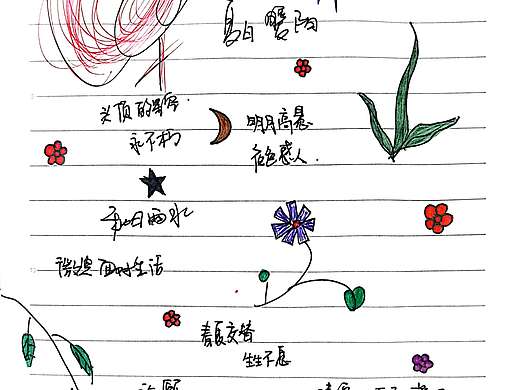 夏日暖阳
头顶的星空
永不朽
明月高悬
夜色惑人.
秋日雨水
微笑面对生活
春夏交替
生生不息